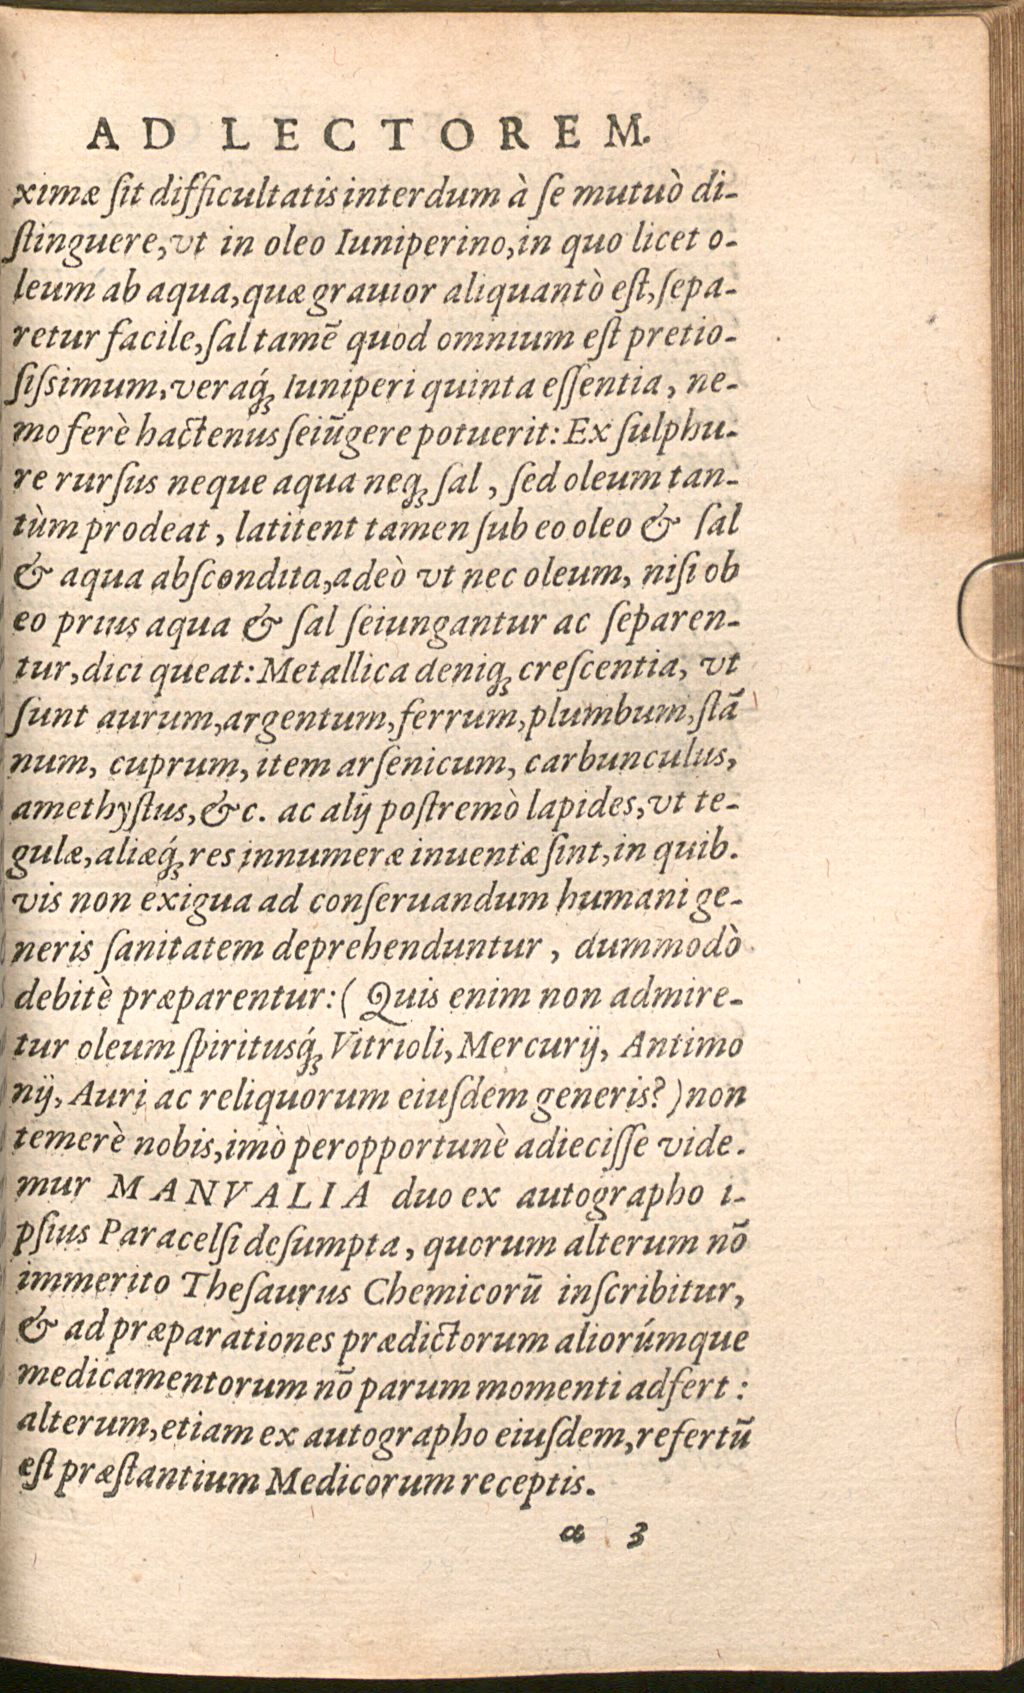 AD LECTOREM.
ximæ ſit difficultatis interdum à ſe mutuò di-
ſtinguere, vt in oleo Iuniperino, in quo licet o-
leum ab aqua, quæ grauior aliquantò eſt, ſepa-
retur facile, ſal tamẽ quod omnium eſt pretio-
ſiſsimum, veraq́ꝫ Iuniperi quinta eſſentia, ne-
mo ferè hactenus ſeiũgere potuerit: Ex ſulphu-
re rurſus neque aqua neqꝫ ſal, ſed oleum tan-
tùm prodeat, latitent tamen ſub eo oleo & ſal
& aqua abſcondita, adeò vt nec oleum, niſi ob
eo prius aqua & ſal ſeiungantur ac ſeparen-
tur, dici queat: Metallica deniqꝫ creſcentia, vt
ſunt aurum, argentum, ferrum, plumbum, ſtã
num, cuprum, item arſenicum, carbunculus,
amethyſtus, &c. ac alij poſtremò lapides, vt te-
gulæ, aliæq́ꝫ res innumeræ inuentæ ſint, in quib.
vis non exigua ad conſeruandum humani ge-
neris ſanitatem deprehenduntur, dummodò
debitè præparentur: (Quis enim non admire-
tur oleum ſpiritusq́ꝫ Vitrioli, Mercurij, Antimo
nij, Auri ac reliquorum eiuſdem generis?) non
temerè nobis, imò peropportunè adieciſſe vide-
mur MANVALIA duo ex autographo i-
pſius Paracelſi deſumpta, quorum alterum nõ
immerito Theſaurus Chemicorũ inſcribitur,
& ad præparationes prædictorum aliorúmque
medicamentorum nõ parum momenti adfert:
alterum, etiam ex autographo eiuſdem, refertũ
eſt præſtantium Medicorum receptis.
a 3